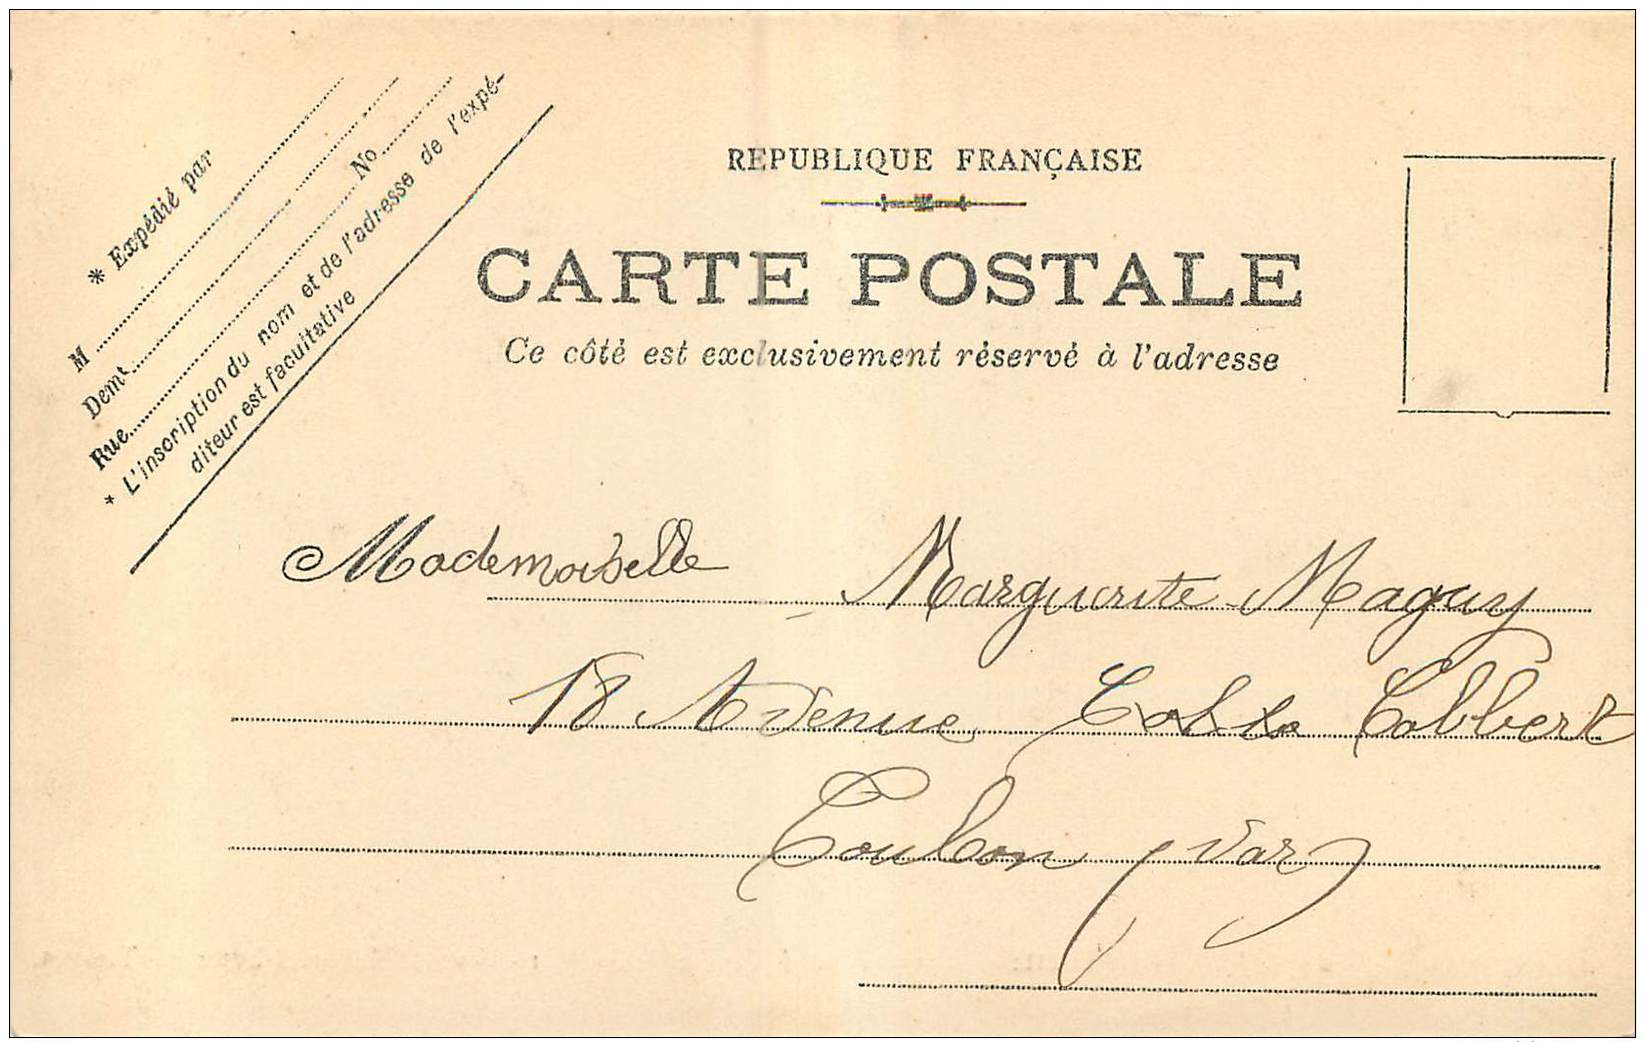 * Expédié par
M
Demt
Rue No
* L'inscription du nom et de l'adresse de l'expé-
diteur est facultative
REPUBLIQUE FRANÇAISE
CARTE POSTALE
Ce côté est exclusivement réservé à l'adresse
Mademoiselle Marguerite Maguy
18 Avenue Colbert
Toulon (Var)